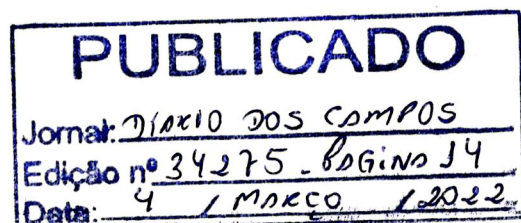 PUBLICADO
Jornal: DIARIO DOS CAMPOS
Edição nº 34275 - PAGINA 14
Data: 4 / MARÇO / 2022